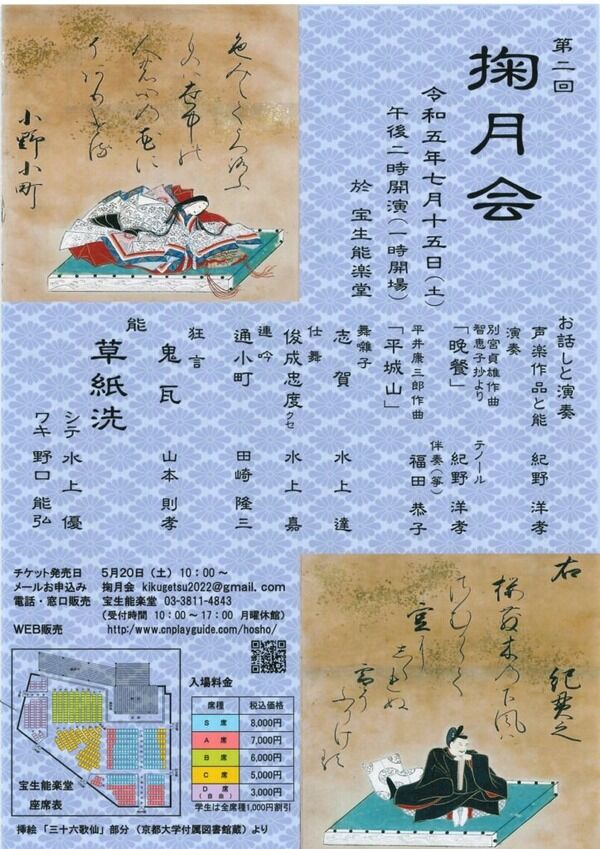 第二回
掬月会
令和五年七月十五日（土）
午後二時開演（一時開場）
於 宝生能楽堂
小野小町
お話しと演奏
声楽作品と能 紀野 洋孝
演奏
別宮貞雄作曲
智恵子抄より
「晩餐」 テノール 紀野 洋孝
平井康三郎作曲 伴奏（箏）
「平城山」 福田 恭子
舞囃子
志賀 水上 達
仕舞
俊成忠度 クセ 水上 嘉
連吟
通小町 田崎 隆三
狂言
鬼瓦 山本 則孝
能
草紙洗 シテ 水上 優
ワキ 野口 能弘
チケット発売日 5月20日（土）10：00～
メールお申込み 掬月会 kikugetsu2022@gmail.com
電話・窓口販売 宝生能楽堂 03-3811-4843
（受付時間 10：00～17：00 月曜休館）
WEB販売 http:/www.cnplayguide.com/hosho/
宝生能楽堂
座席表
入場料金
席種 税込価格
S 席 8,000円
A 席 7,000円
B 席 6,000円
C 席 5,000円
D 席（自由） 3,000円
学生は全席種1,000円割引
挿絵「三十六歌仙」部分（京都大学付属図書館蔵）より
右 紀貫之